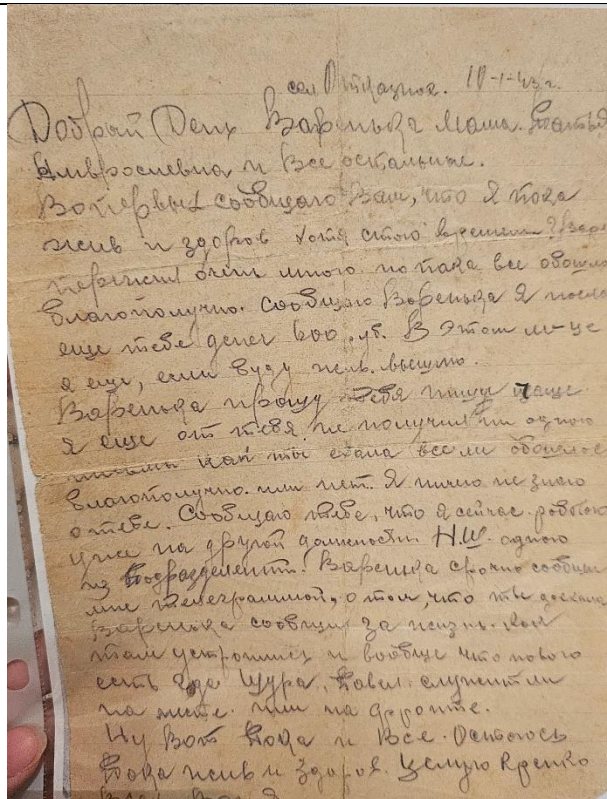 сел Отказное. 10-1-43 г.
Добрый День Варенька Мама.
Амвросиевна и Все остальные.
Вопервых сообщаю Вам, что я пока
жив и здоров хотя
пережил очень много но пока все обошло
благополучно. Сообщаю Варенька я посла
еще тебе денег В этом м-це
я еще, если буду жив. вышлю.
Варенька прошу тебя пиши чаще
я еще от тебя не получил ни одного
письма как ты ехала все ли обошлось
благополучно. или нет. Я ничего не знаю
о тебе. Сообщаю тебе, что я сейчас работаю
уже на другой должности Н.Ш. одного
из Подразделений. Варенька срочно сообщи
мне телеграммой, о том, что ты доехала
Варенька сообщи за жизнь. как
там устроились и вообще что нового
есть где Шура, Павел. служит ли
на месте. или на фронте.
Ну Вот Пока и Все. Остаюсь
Пока жив и здоров. Целую крепко